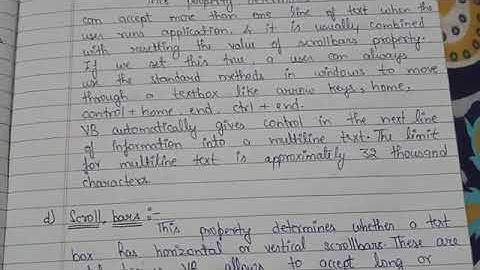 This property
can accept more than one line of text when the
user runs application, & it is usually combined
with resetting the value of scrollbars property.
If we set this true, a user can always
use the standard methods in windows to move
through a textbox like arrow keys, home,
control + home, end, ctrl + end.
VB automatically gives control in the next line
of information into a multiline text. The limit
for multiline text is approximately 32 thousand
characters
d) Scroll bars :-
This property determines whether a text
box has horizontal or vertical scrollbars. These are
VB allows to accept long or